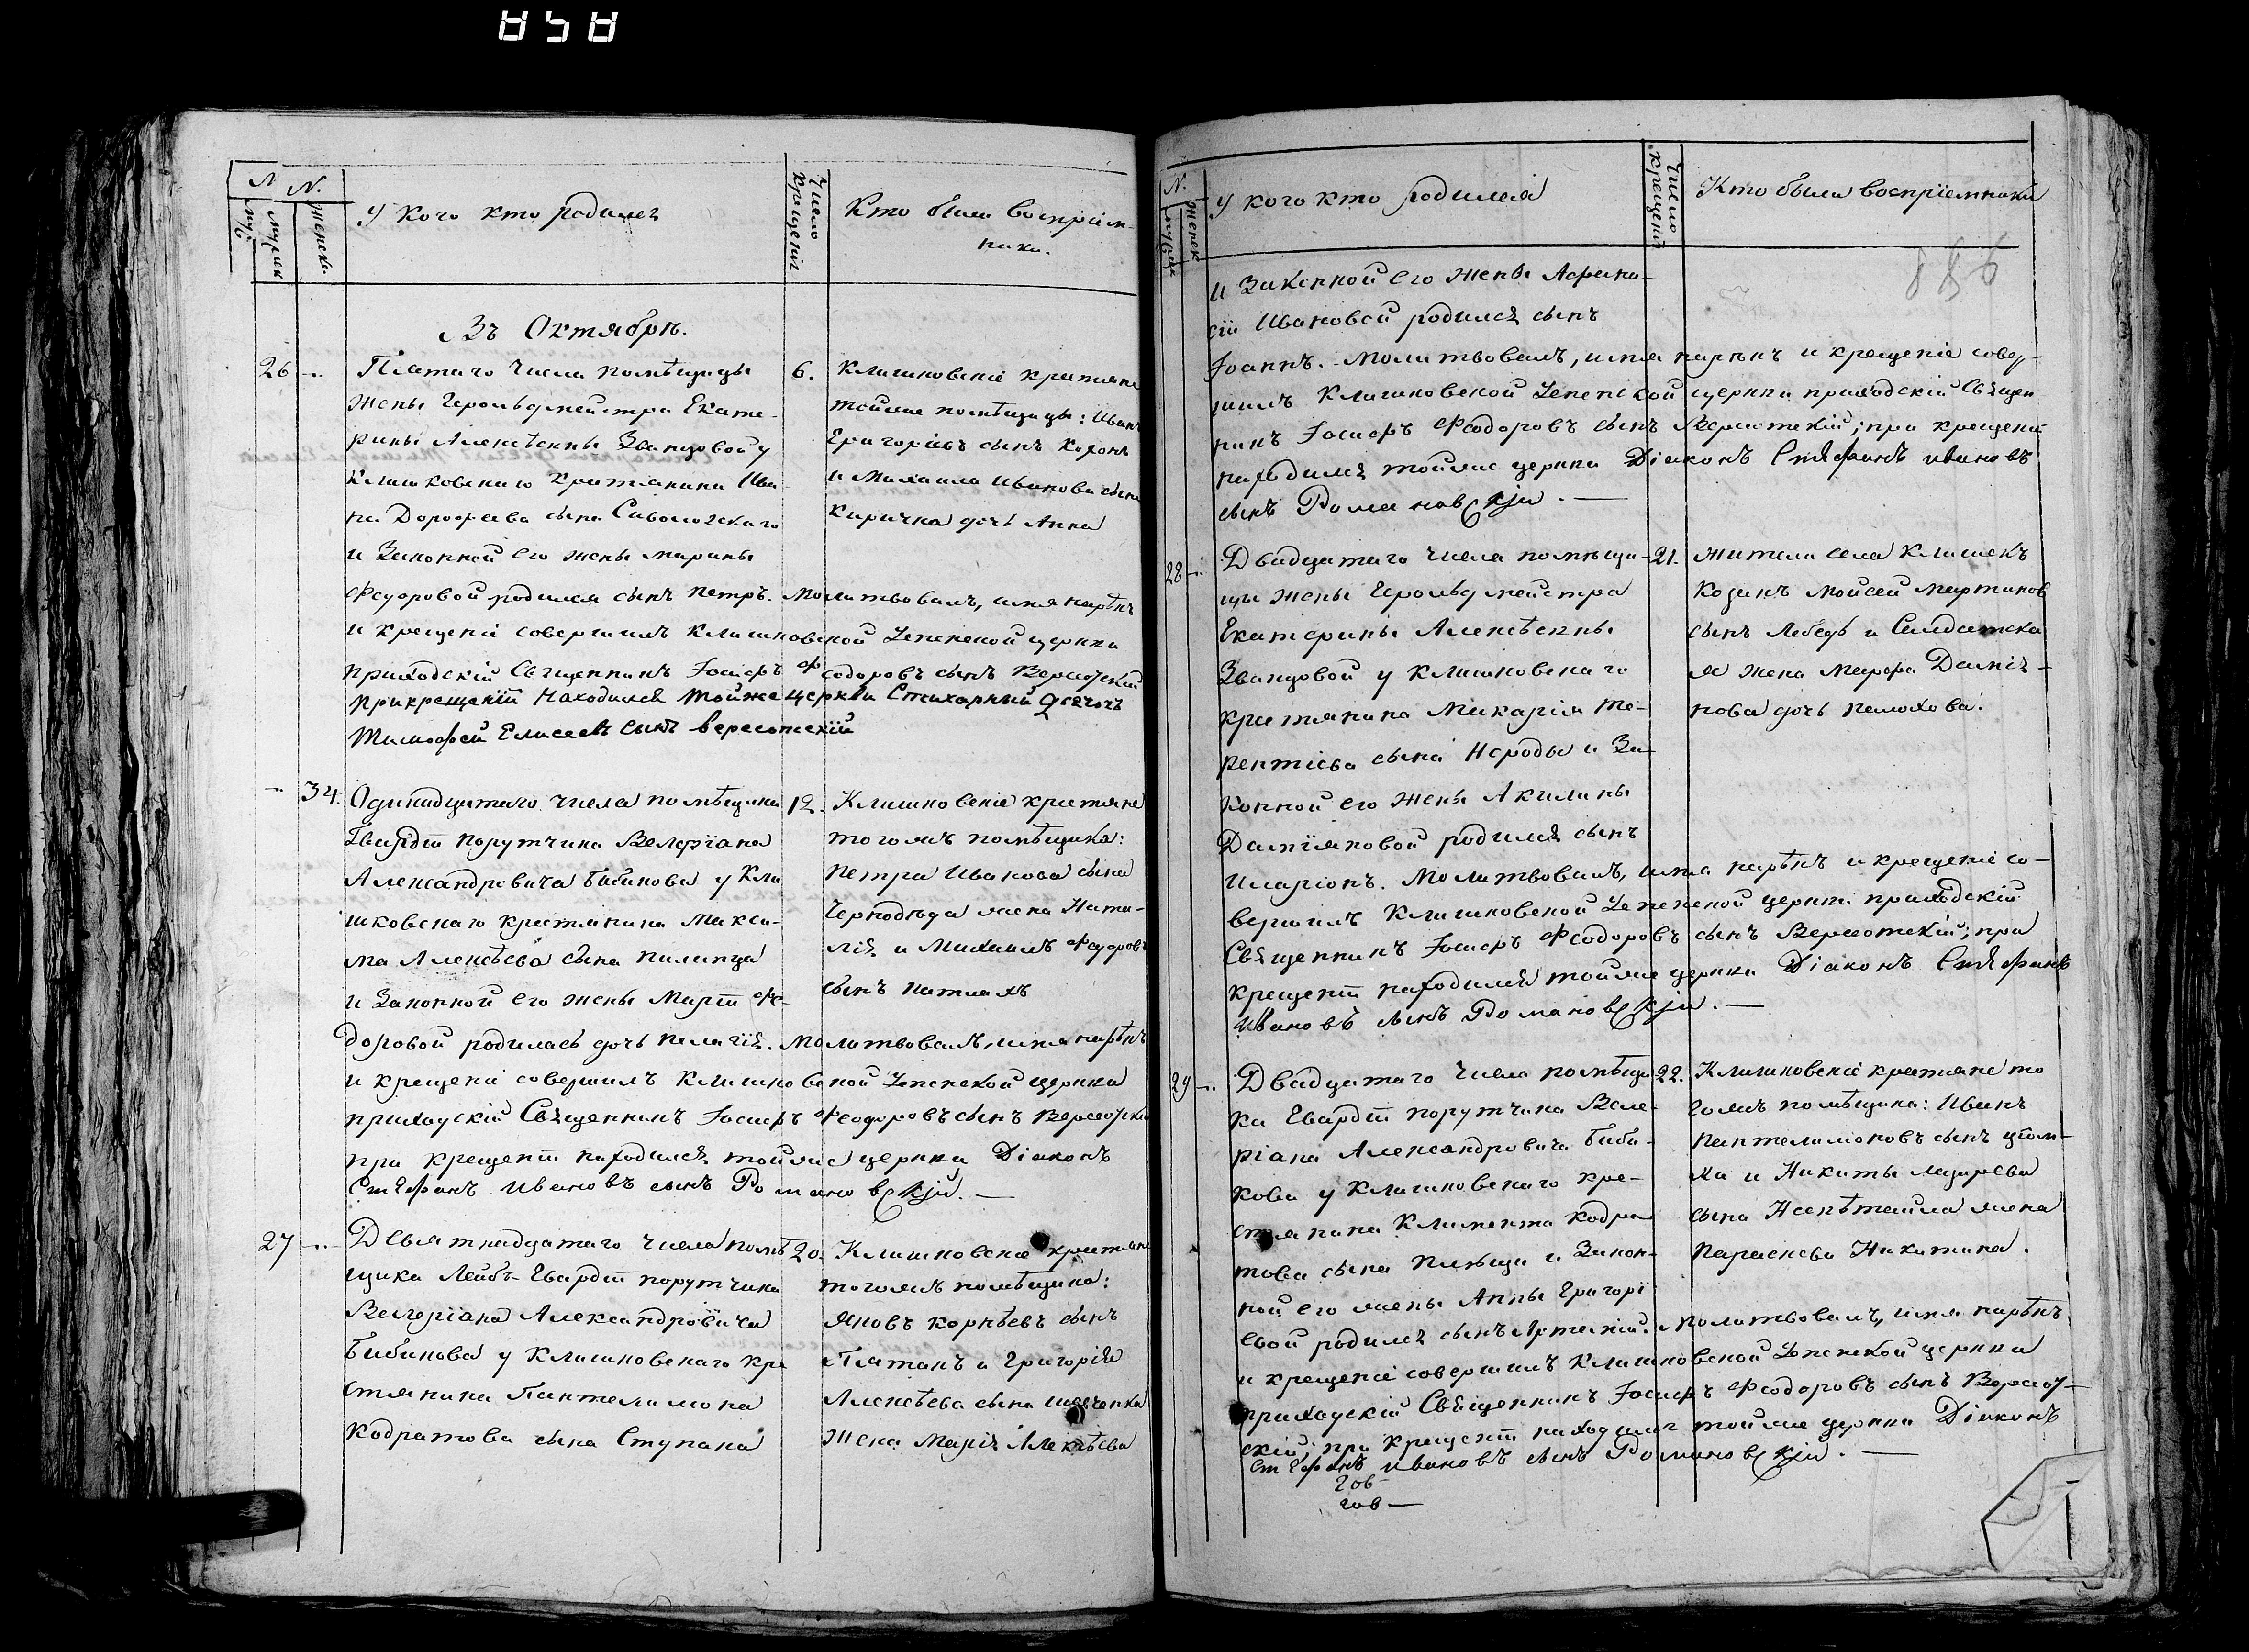 858
N N.
муж
мужск
женска
У кого кто родился
Число крещенія
Кто были воспріем-
ники.
Въ Октябрѣ.
26
Пятаго числа помѣщицы
жены Герольдмейстра Екате-
рины Алексѣевны Званцовой у
Клишковскаго крестянина Ива-
на Дорофеева сына Сиволозскаго
и Законной его жены Марины
Федоровой родился сынъ Петръ. Молитвовалъ, имя нарѣкъ
и крещеніе совершилъ Клишковской Успенской церкви
приходскій Священникъ Іосифъ Феодоровъ сынъ Вересотскій
при крещеніи находился тойже церкви Стихарный Дячокъ
Тимофей Елисеевъ сынъ Вересотскій
6.
Клишковскіе крестяне
тойже помѣщицы: Иванъ
Григоріевъ сынъ
и Михаила Иванова сына
Киричка дочь Анна
34.
Одинадцатаго числа помѣщика
Гвардіи порутчика Валеріана
Александровича Бибикова у Кли
шковскаго крестянина Макси-
ма Алексѣева сына Пилипца
и Законной его жены Марѳи Фе-
доровой родилась дочь Пелагія. Молитвовалъ, имя нарѣкъ
и крещеніе совершилъ Клишковской Успенской церкви
приходскій Священникъ Іосифъ Феодоровъ сынъ Вересотскій
при крещеніи находился тойже церкви Діаконъ
Стефанъ Ивановъ сынъ Романовскій.
12.
Клишковскіе крестяне
тогожъ помѣщика:
Петра Иванова сына
Чернодѣда жена Ната-
лія и Михаилъ Федоровъ
сынъ
27
Девятнадцатаго числа помѣ
щика Лейбъ-Гвардіи порутчика
Валеріана Александровича
Бибикова у Клишковскаго кре
стянина Пантелимона
Кодратова сына Ступака
20.
Клишковскіе крестяне
тогожъ помѣщика:
Яковъ Корнѣевъ сынъ
Пятакъ и Григорія
Алексѣева сына Шевченка
жена Марія Алексѣева
N.
мужск
женск
У кого кто родился
Число крещеній
Кто были воспріемники
886
и Законной его жены Афана-
сіи Ивановой родился сынъ
Іоаннъ. Молитвовалъ, имя нарѣкъ и крещеніе совер-
шилъ Клишковской Успенской церкви приходскій Священ
никъ Іосифъ Феодоровъ сынъ Вересотскій; при крещеніи
находился тойже церкви Діаконъ Стефанъ Ивановъ
сынъ Романовскій.
28
Двадцатаго числа помѣщи-
цы жены Герольдмейстра
Екатерины Алексѣевны
Званцовой у Клишковскаго
крестянина Макарія Те-
рентіева сына Нероды и За-
конной его жены Акилины
Даміяновой родился сынъ
Иларіонъ. Молитвовалъ, имя нарѣкъ и крещеніе со-
вершилъ Клишковской Успенской церкви приходскій
Священникъ Іосифъ Феодоровъ сынъ Вересотскій; при
крещеніи находился тойже церкви Діаконъ Стефанъ
Ивановъ сынъ Романовскій.
21.
Жители села Клишекъ
Козакъ Мойсей Мартиновъ
сынъ Лебедь и Салдатска
я жена Марфа Даміа-
нова дочь
29
Двадцатаго числа помѣщи
ка Гвардіи порутчика Вале-
ріана Александровича Биби-
кова у Клишковскаго кре-
стянина Климента Кодра
това сына и Закон-
ной его жены Анны Григорі
евой родился сынъ Артемій. Молитвовалъ, имя нарѣкъ
и крещеніе совершилъ Клишковской Успенской церкви
приходскій Священникъ Іосифъ Феодоровъ сынъ Вересот-
скій; при крещеніи находился тойже церкви Діаконъ
Стефанъ Ивановъ сынъ Романовскій.
22.
Клишковскіе крестяне то
гожъ помѣщика: Иванъ
Пантелимоновъ сынъ
и Никиты Лазарева
сына жена
Параскева Никитина.